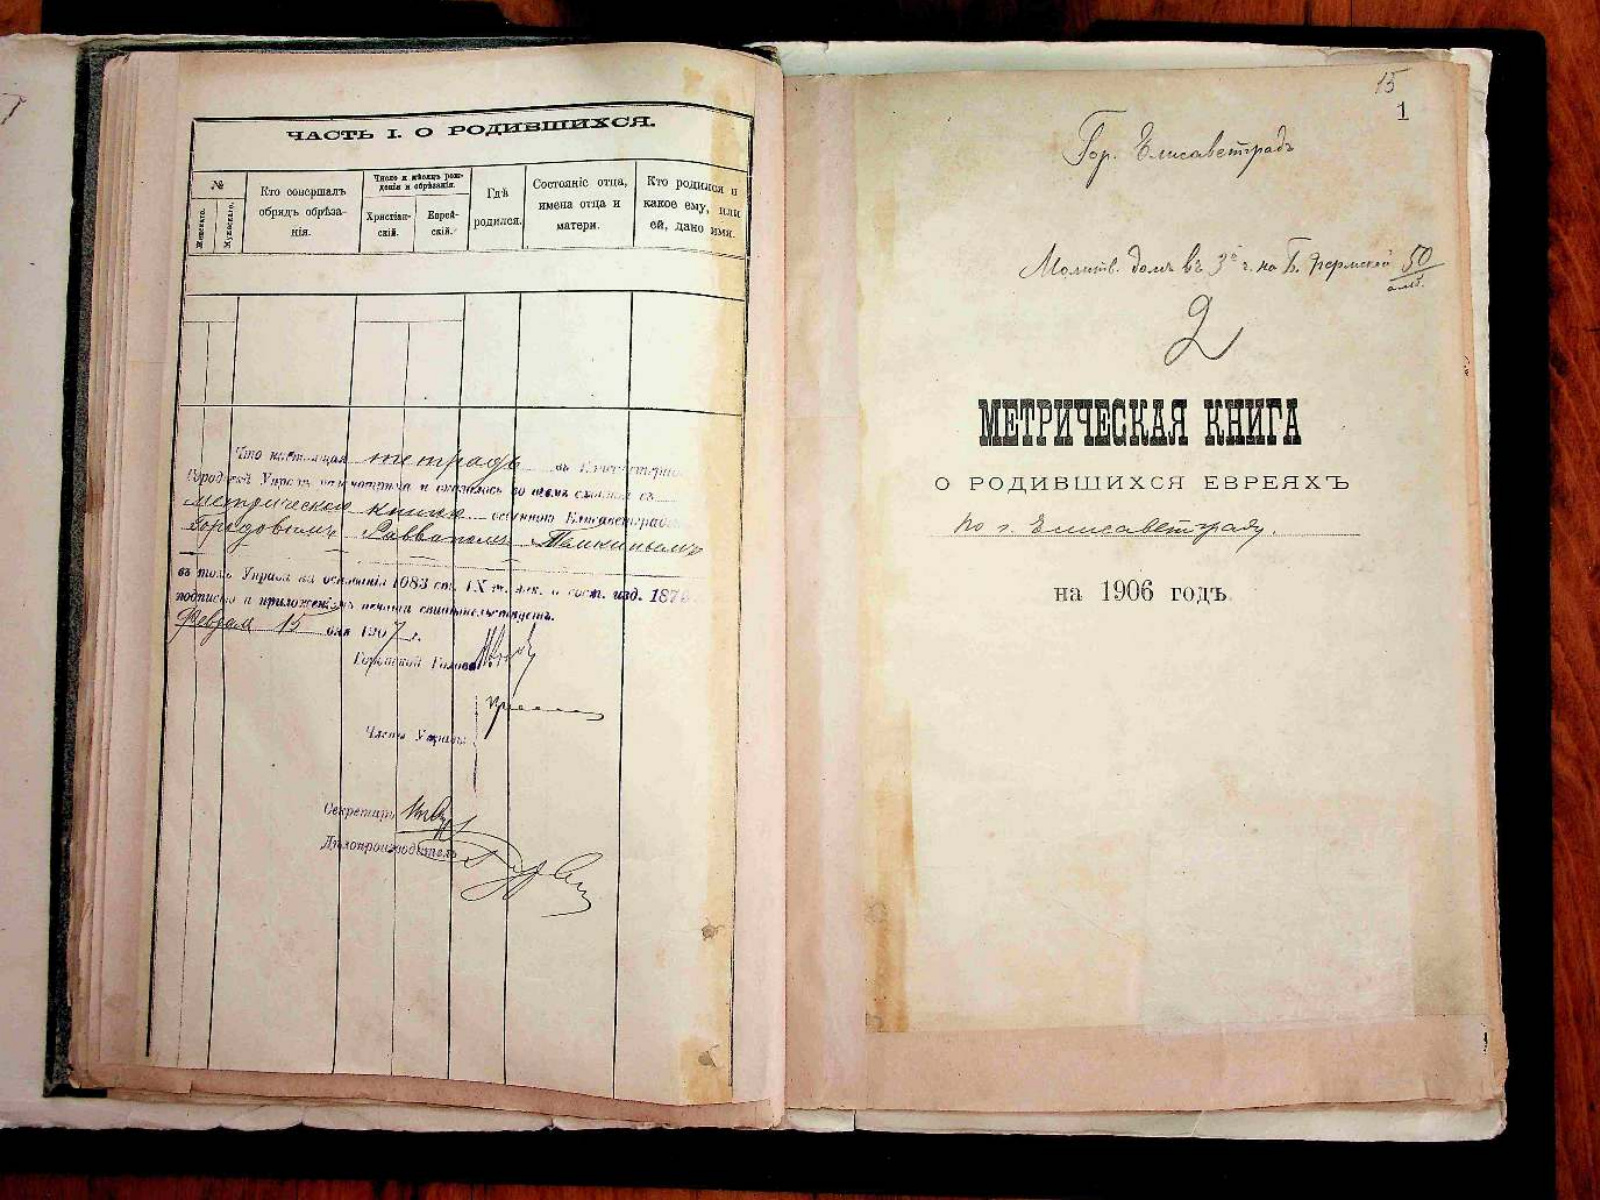 ЧАСТЬ I. О РОДИВШИХСЯ.
№
Женскаго.
Мужескаго.
Кто совершалъ
обрядъ обрѣза-
нія.
Число и мѣсяцъ рож-
денія и обрѣзанія.
Христіан-
скій.
Еврей-
скій.
Гдѣ
родился.
Состояніе отца,
имена отца и
матери.
Кто родился и
какое ему, или
ей, дано имя.
Что настоящая тетрадь въ Елисаветград
Городской Управѣ разсмотрена и оказалась во всемъ сходна съ
метрическою книгою веденною Елисаветград
Городовымъ Раввиномъ Темкинымъ
въ томъ Управа на основаніи 1083 ст. IX т. зак. о сост. изд. 1876
подписью и приложеніемъ печати свидѣтельствуетъ.
Февраля 15 дня 1907 г.
Городской Голова
Члены Управы
Секретарь
Дѣлопроизводитель
15
1
Гор. Елисаветградъ
Молитв. домъ въ 3й ч. на Б. Пермской 50
2
МЕТРИЧЕСКАЯ КНИГА
О РОДИВШИХСЯ ЕВРЕЯХЪ
по г. Елисаветграду.
на 1906 годъ